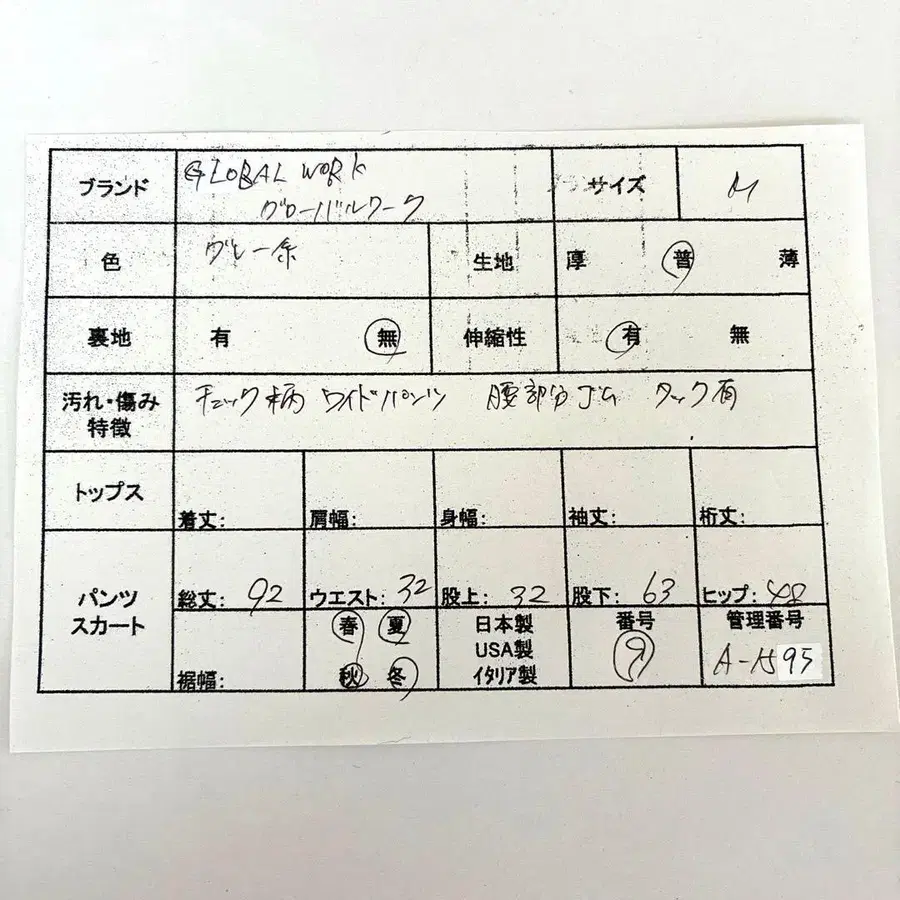 ブランド GLOBAL WORK サイズ M
グローバルワーク
色 グレー系 生地 厚 普 薄
裏地 有 無 伸縮性 有 無
汚れ・傷み チェック柄 ワイドパンツ 腰部分ゴム タック有
特徴
トップス 着丈: 肩幅: 身幅: 袖丈: 裄丈:
パンツ 総丈: 92 ウエスト: 32 股上: 32 股下: 63 ヒップ: 48
スカート 春 夏 日本製 番号 管理番号
USA製 9 A-H95
裾幅: 秋 冬 イタリア製